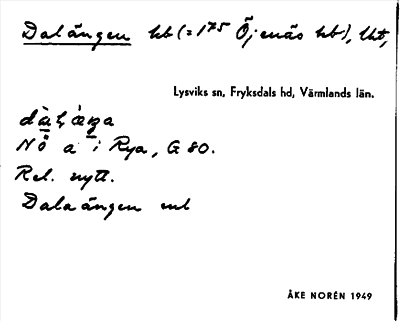 Dalängen hb (= 1⁷⁵ Öjenäs hb), lht,
Lysviks sn, Fryksdals hd, Värmlands län.
Nö a i Rya, G 80.
Rel. nytt.
Dalaängen enl
ÅKE NORÉN 1949